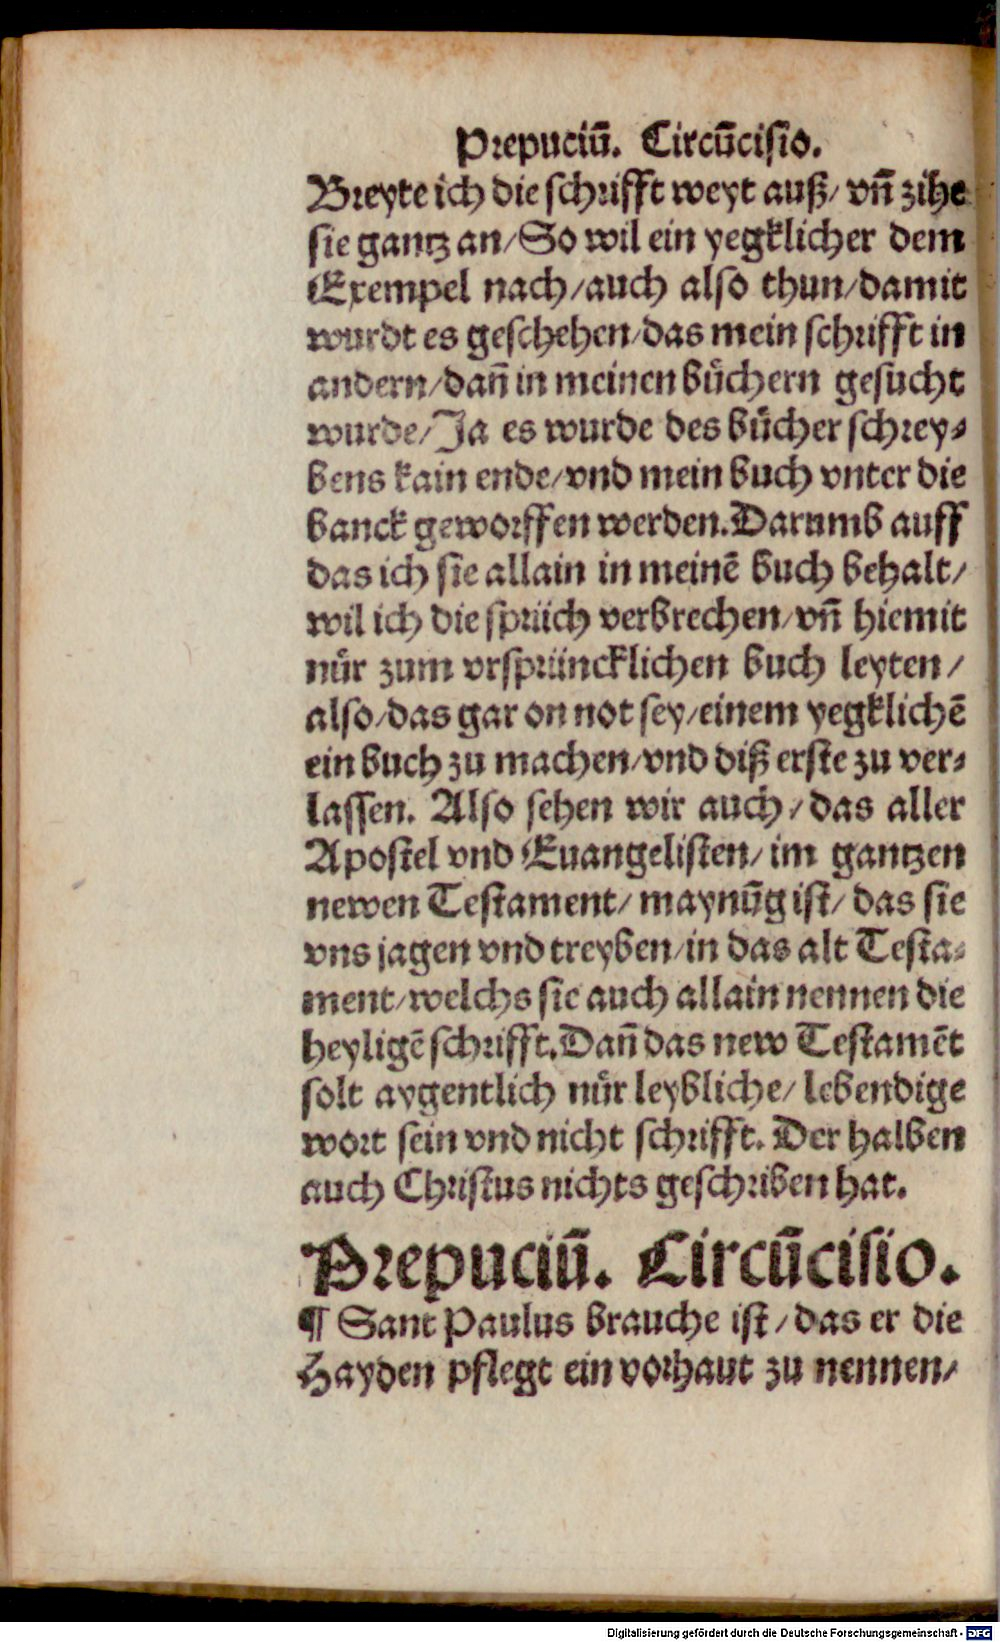 Prepuciū. Circūcisio.
Breyte ich die schrifft weyt auß/ vn̄ zihe
sie gantz an/ So wil ein yegklicher dem
Exempel nach/ auch also thun/ damit
wurdt es geschehen/ das mein schrifft in
andern/ dañ in meinen bůchern gesucht
wurde/ Ja es wurde des bůcher schrey⸗
bens kain ende/ vnd mein buch vnter die
banck geworffen werden. Darumb auff
das ich sie allain in meinē buch behalt/
wil ich die sprüch verbrechen/ vn̄ hiemit
nůr zum vrsprüncklichen buch leyten/
also/ das gar on not sey/ einem yegklichē
ein buch zu machen/ vnd diß erste zu ver⸗
lassen. Also sehen wir auch/ das aller
Apostel vnd Euangelisten/ im gantzen
newen Testament/ maynūg ist/ das sie
vns jagen vnd treyben/ in das alt Testa⸗
ment/ welchs sie auch allain nennen die
heyligē schrifft. Dañ das new Testamēt
solt aygentlich nůr leybliche/ lebendige
wort sein vnd nicht schrifft. Der halben
auch Christus nichts geschriben hat.
Prepuciū. Circūcisio.
¶ Sant Paulus brauche ist/ das er die
Hayden pflegt ein vorhaut zu nennen/
Digitalisierung gefördert durch die Deutsche Forschungsgemeinschaft - DFG